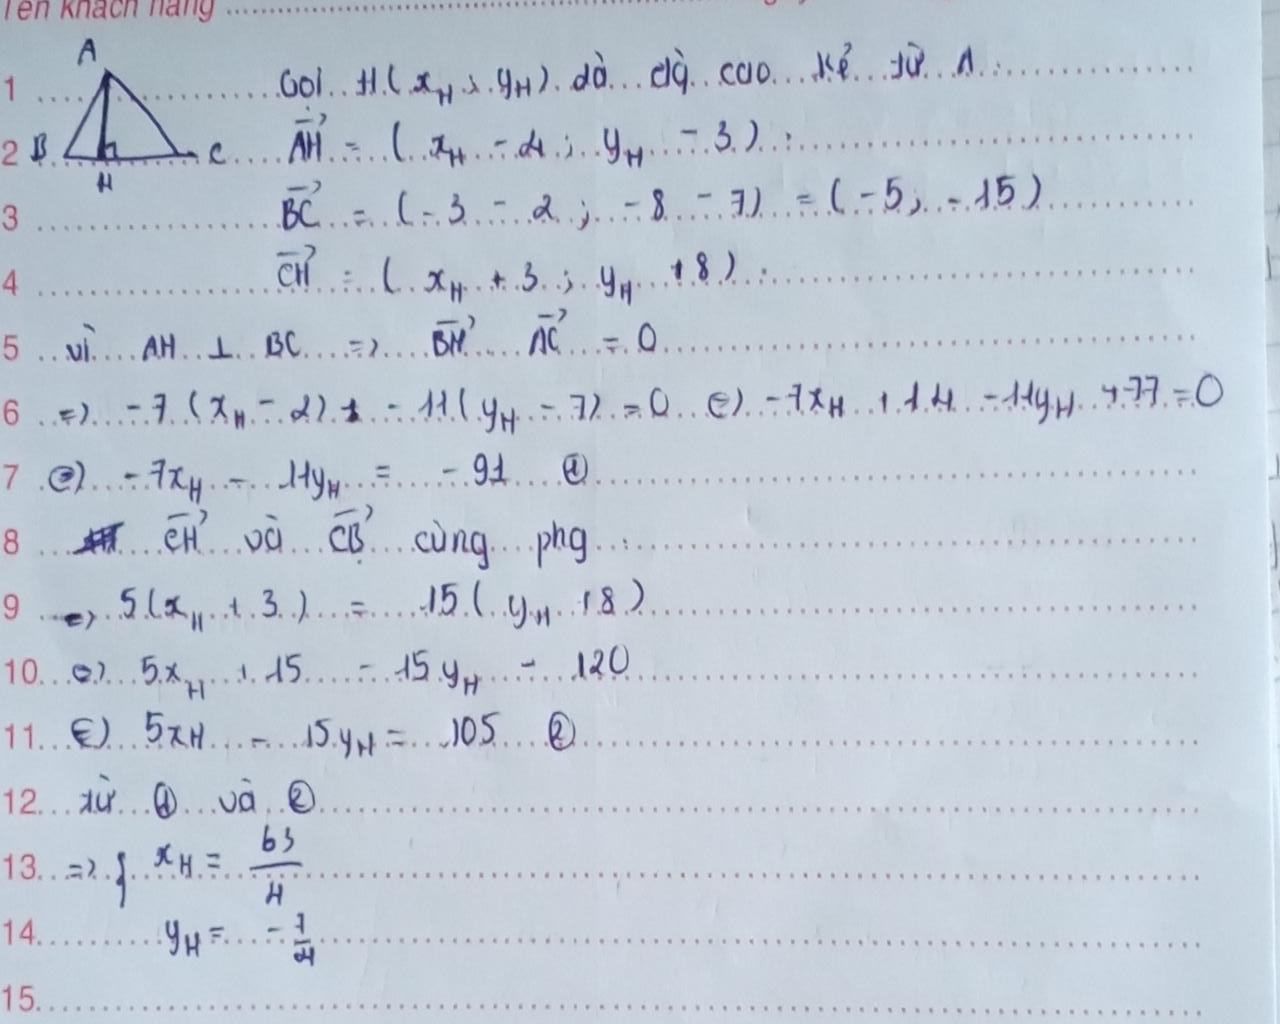 Tên khách hàng
A
1 Gọi H(x_H; y_H) là đg cao kẻ từ A.
2 B C AH→ = (x_H - 4; y_H - 3).
H
3 BC→ = (-3 - 2; -8 - 7) = (-5; -15)
4 CH→ = (x_H + 3; y_H + 8).
5 vì AH ⊥ BC => BH→ AC→ = 0
6 => -7(x_H - 2) + -11(y_H - 7) = 0 <=> -7x_H + 14 - 11y_H + 77 = 0
7 <=> -7x_H - 11y_H = -91 ①
8 CH→ và CB→ cùng phg
9 => 5(x_H + 3) = 15(y_H + 8)
10 <=> 5x_H + 15 = 15y_H - 120
11 <=> 5x_H - 15y_H = 105 ②
12 từ ① và ②
13 => { x_H = 63/4
14 y_H = -7/4
15